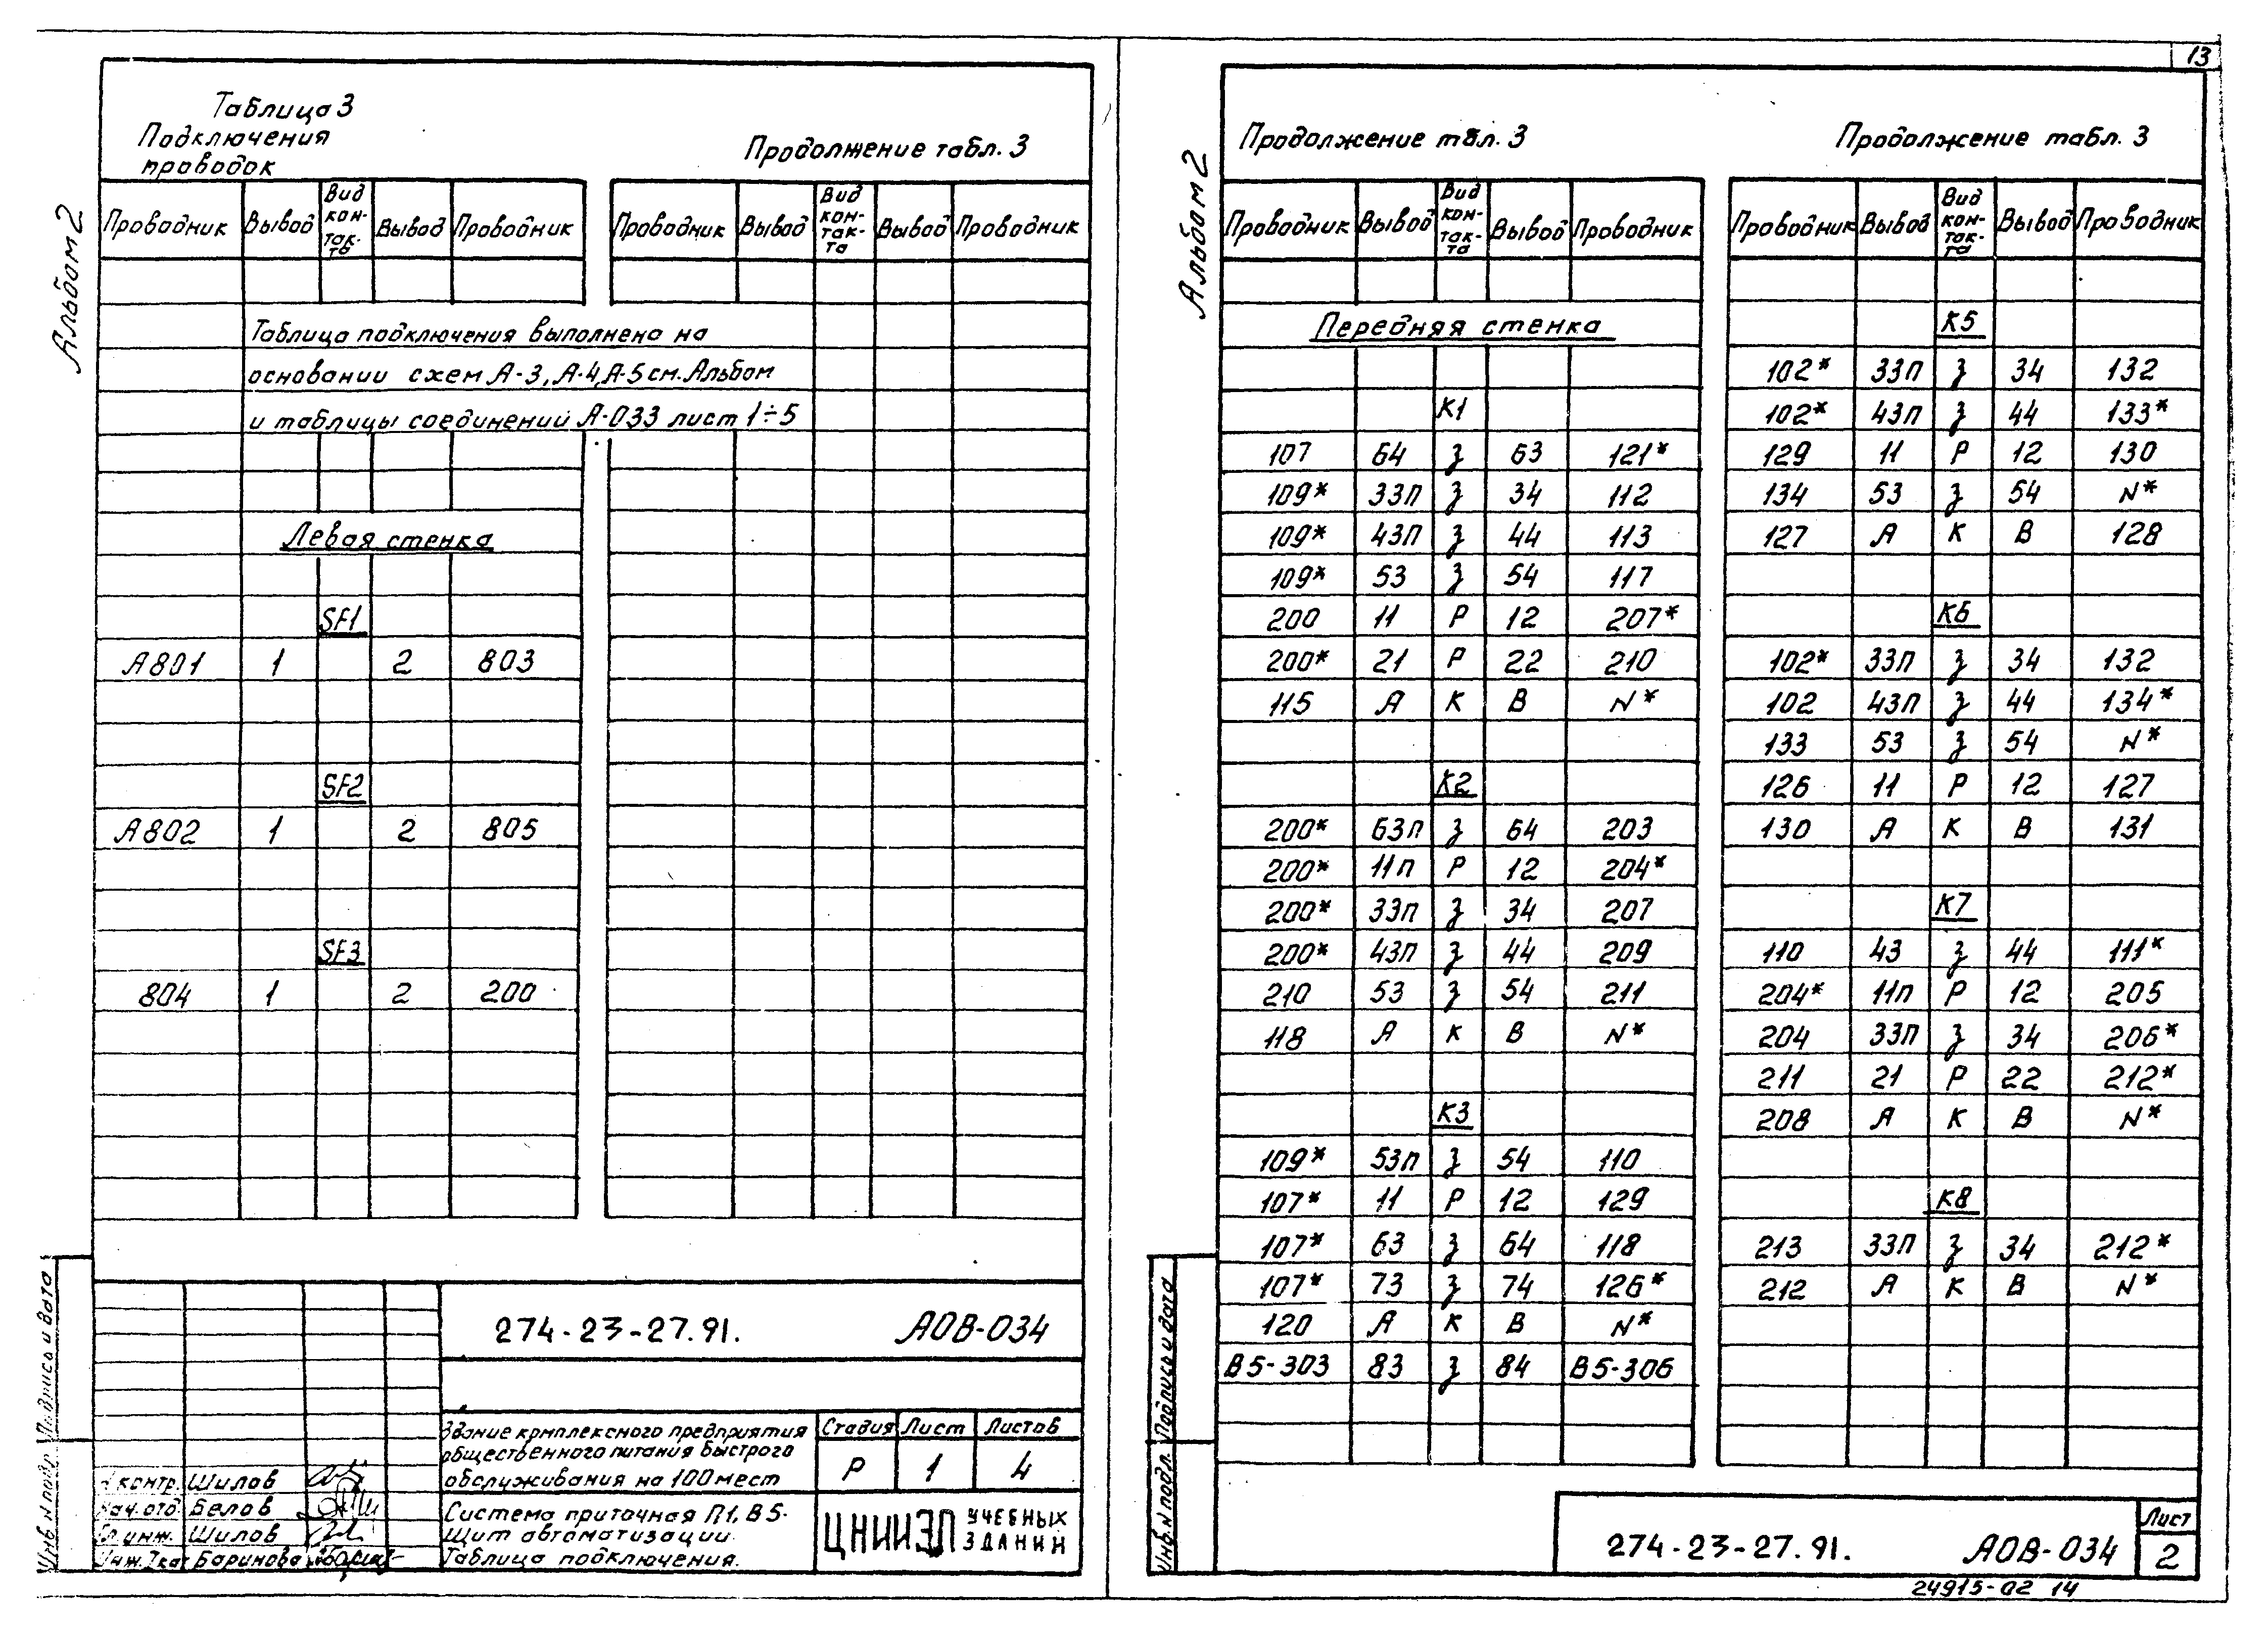 13
Альбом 2
Таблица 3
Подключения
проводок
Проводник Вывод Вид кон-так-та Вывод Проводник
Таблица подключения выполнена на
основании схем А-3, А-4, А-5 см. Альбом
и таблицы соединений А-033 лист 1÷5
Левая стенка
SF1
А801 1 2 803
SF2
А802 1 2 805
SF3
804 1 2 200
Продолжение табл. 3
Проводник Вывод Вид кон-так-та Вывод Проводник
274-23-27.91. АОВ-034
Здание комплексного предприятия
общественного питания быстрого
обслуживания на 100 мест
Стадия Лист Листов
Р 1 4
Система приточная П1, В5.
Щит автоматизации.
Таблица подключения.
ЦНИИЭП УЧЕБНЫХ ЗДАНИЙ
Н контр. Шилов
Нач. отд. Белов
Гл инж. Шилов
Инж. 2кат Баринова
Инв. N подл. Подпись и дата
Альбом 2
Продолжение тбл. 3
Проводник Вывод Вид кон-так-та Вывод Проводник
Передняя стенка
К1
107 64 З 63 121*
109* 33П З 34 112
109* 43П З 44 113
109* 53 З 54 117
200 11 Р 12 207*
200* 21 Р 22 210
115 А К В N*
К2
200* 63П З 64 203
200* 11П Р 12 204*
200* 33П З 34 207
200* 43П З 44 209
210 53 З 54 211
118 А К В N*
К3
109* 53П З 54 110
107* 11 Р 12 129
107* 63 З 64 118
107* 73 З 74 126*
120 А К В N*
В5-303 83 З 84 В5-306
Продолжение табл. 3
Проводник Вывод Вид кон-так-та Вывод Проводник
К5
102* 33П З 34 132
102* 43П З 44 133*
129 11 Р 12 130
134 53 З 54 N*
127 А К В 128
К6
102* 33П З 34 132
102 43П З 44 134*
133 53 З 54 N*
126 11 Р 12 127
130 А К В 131
К7
110 43 З 44 111*
204* 11П Р 12 205
204 33П З 34 206*
211 21 Р 22 212*
208 А К В N*
К8
213 33П З 34 212*
212 А К В N*
Инв. N подл. Подпись и дата
274-23-27.91. АОВ-034
Лист
2
24915-02 14